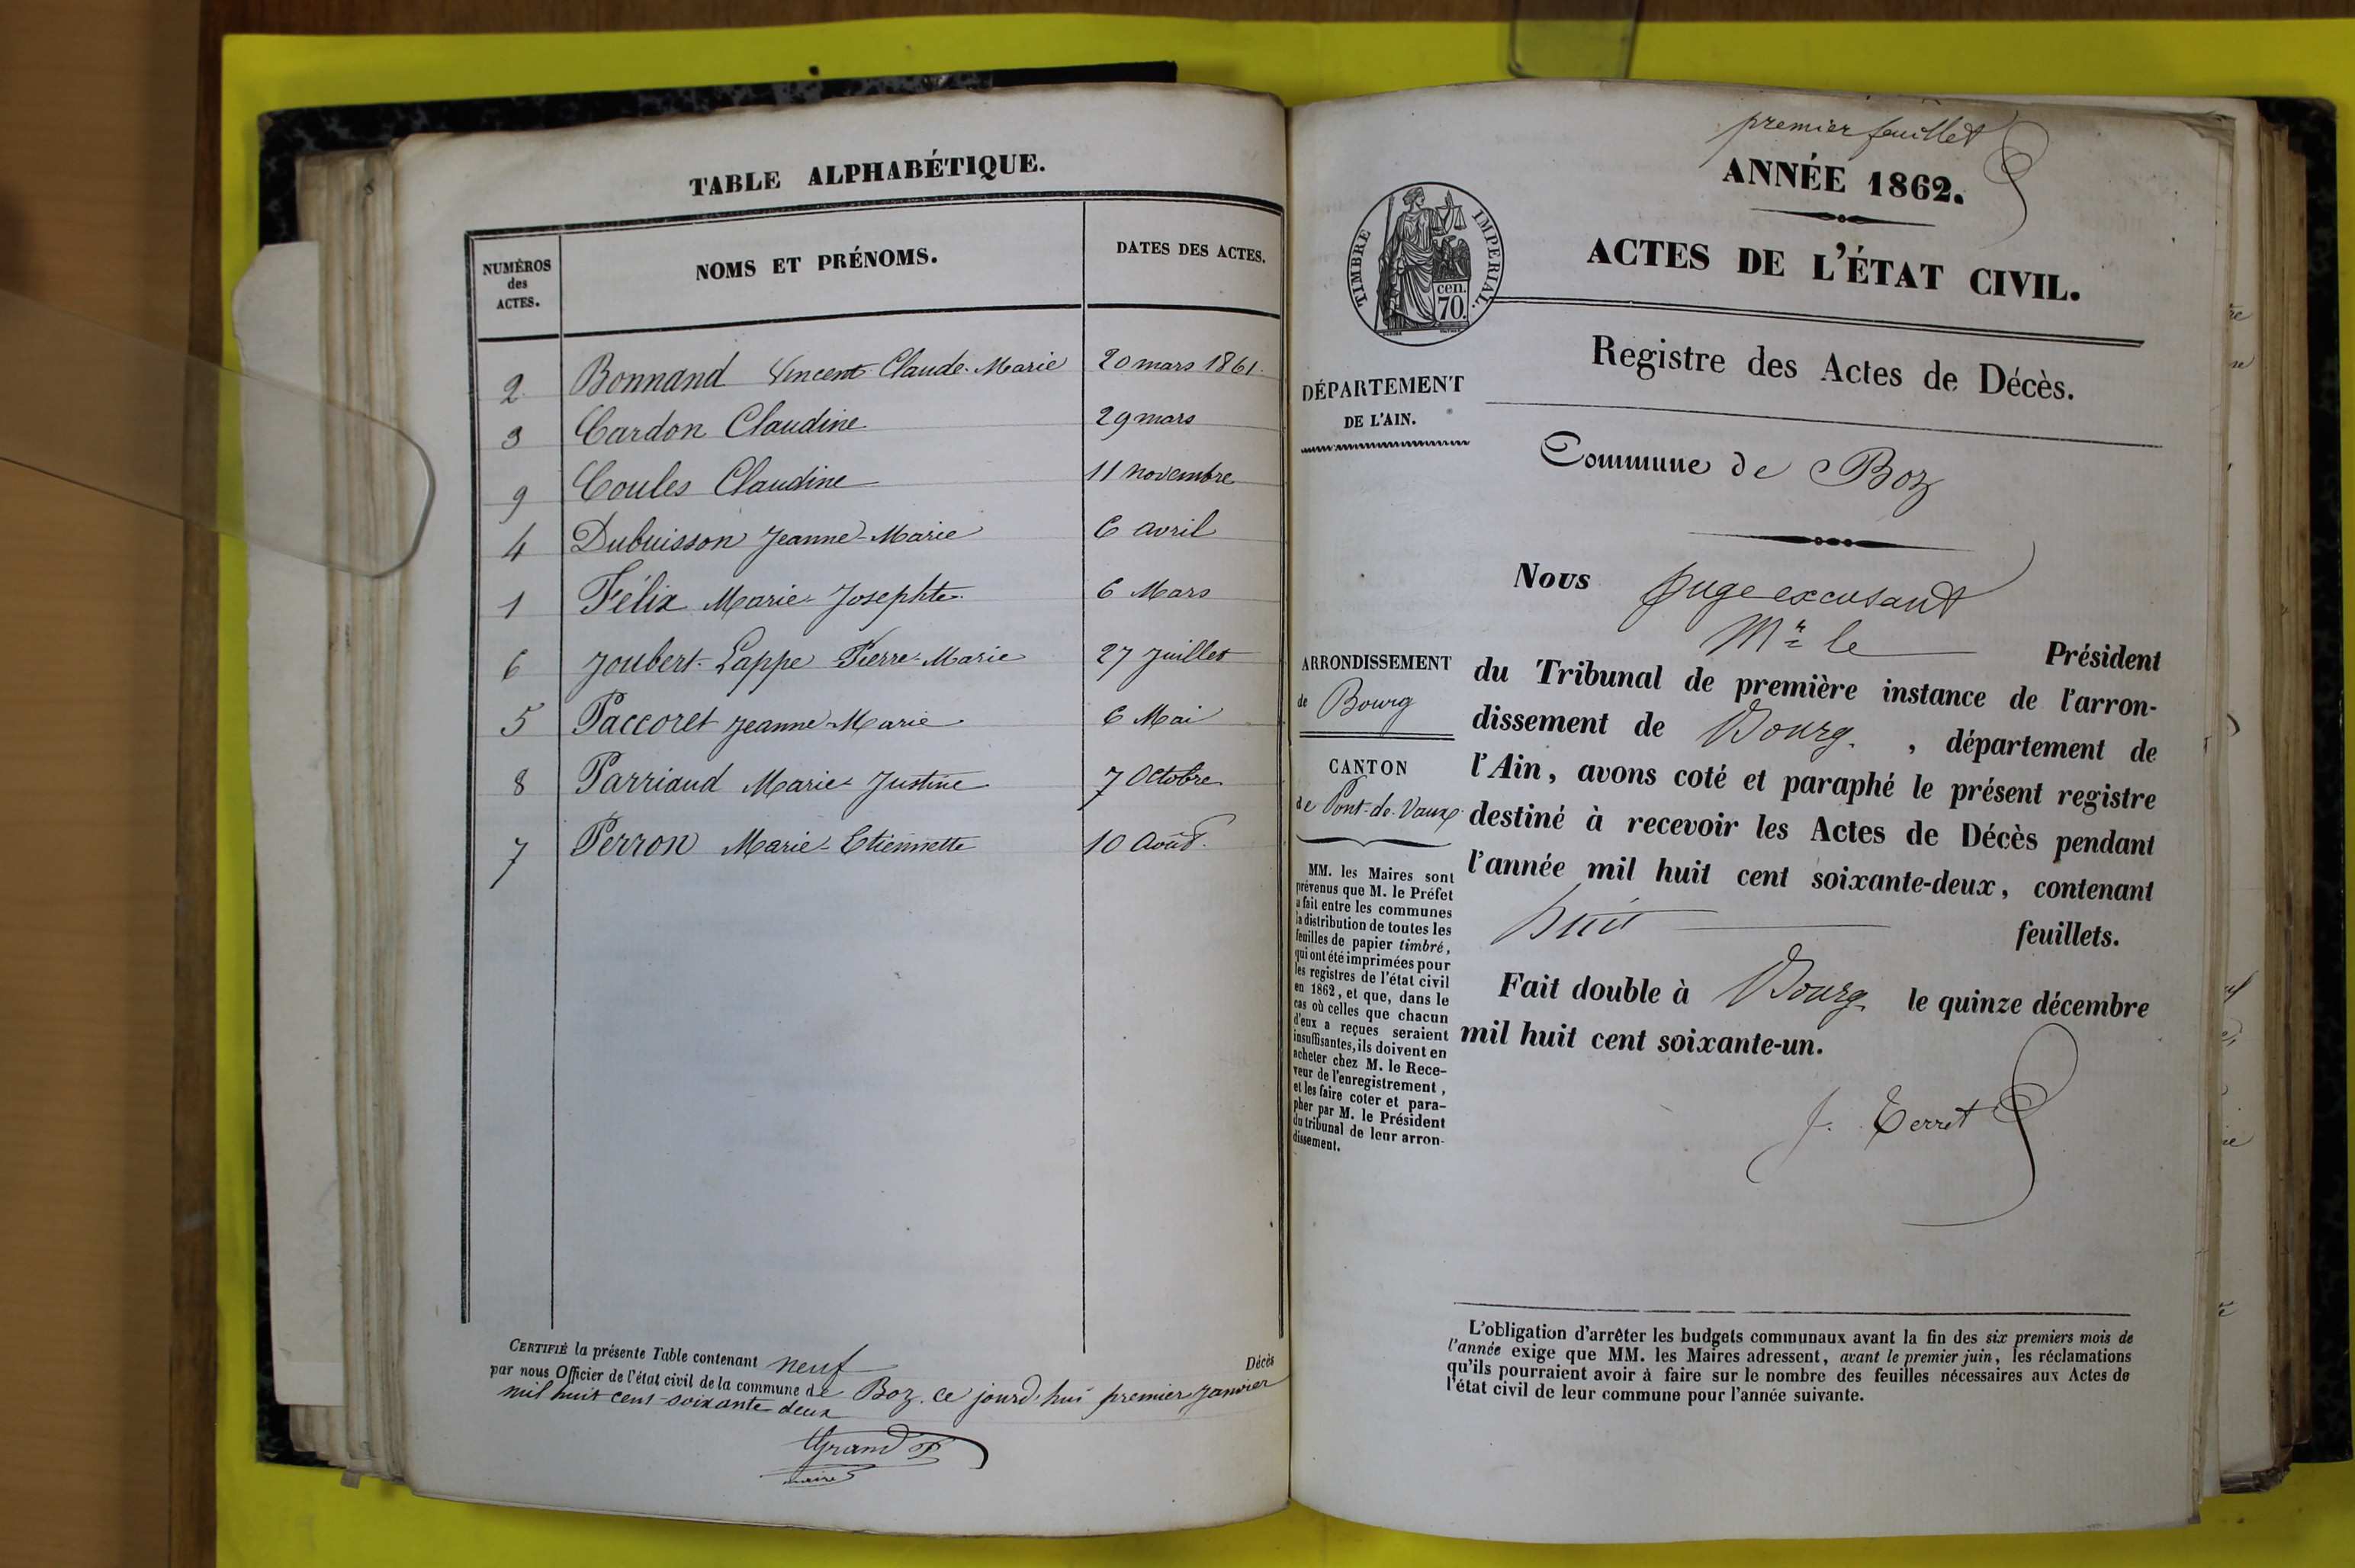 TABLE ALPHABÉTIQUE.
NUMÉROS des ACTES. NOMS ET PRÉNOMS. DATES DES ACTES.
2 Bonnand Vincent Claude-Marie 20 mars 1861.
3 Cardon Claudine 29 mars
9 Coules Claudine 11 novembre
4 Dubuisson Jeanne-Marie 6 avril
1 Félix Marie-Josephte 6 Mars
6 Joubert-Lappe Pierre-Marie 27 Juillet
5 Paccoret Jeanne-Marie 6 Mai
8 Parriaud Marie-Justine 7 Octobre
7 Perron Marie-Etiennette 10 Août.
CERTIFIÉ la présente Table contenant neuf Décès
par nous Officier de l'état civil de la commune de Boz, ce jourd'hui premier Janvier
mil huit cent soixante deux
Grand P
maire
premier feuillet
ANNÉE 1862.
TIMBRE IMPÉRIAL.
cen.
70.
ACTES DE L'ÉTAT CIVIL.
Registre des Actes de Décès.
DÉPARTEMENT
DE L'AIN.
Commune de Boz
ARRONDISSEMENT
de Bourg
CANTON
de Pont-de-Vaux
MM. les Maires sont
prévenus que M. le Préfet
a fait entre les communes
la distribution de toutes les
feuilles de papier timbré,
qui ont été imprimées pour
les registres de l'état civil
en 1862, et que, dans le
cas où celles que chacun
d'eux a reçues seraient
insuffisantes, ils doivent en
acheter chez M. le Rece-
veur de l'enregistrement,
et les faire coter et para-
pher par M. le Président
du tribunal de leur arron-
dissement.
Nous juge excusant
Mr le Président
du Tribunal de première instance de l'arron-
dissement de Bourg. , département de
l'Ain, avons coté et paraphé le présent registre
destiné à recevoir les Actes de Décès pendant
l'année mil huit cent soixante-deux, contenant
huit feuillets.
Fait double à Bourg le quinze décembre
mil huit cent soixante-un.
J. Terret
L'obligation d'arrêter les budgets communaux avant la fin des six premiers mois de
l'année exige que MM. les Maires adressent, avant le premier juin, les réclamations
qu'ils pourraient avoir à faire sur le nombre des feuilles nécessaires aux Actes de
l'état civil de leur commune pour l'année suivante.